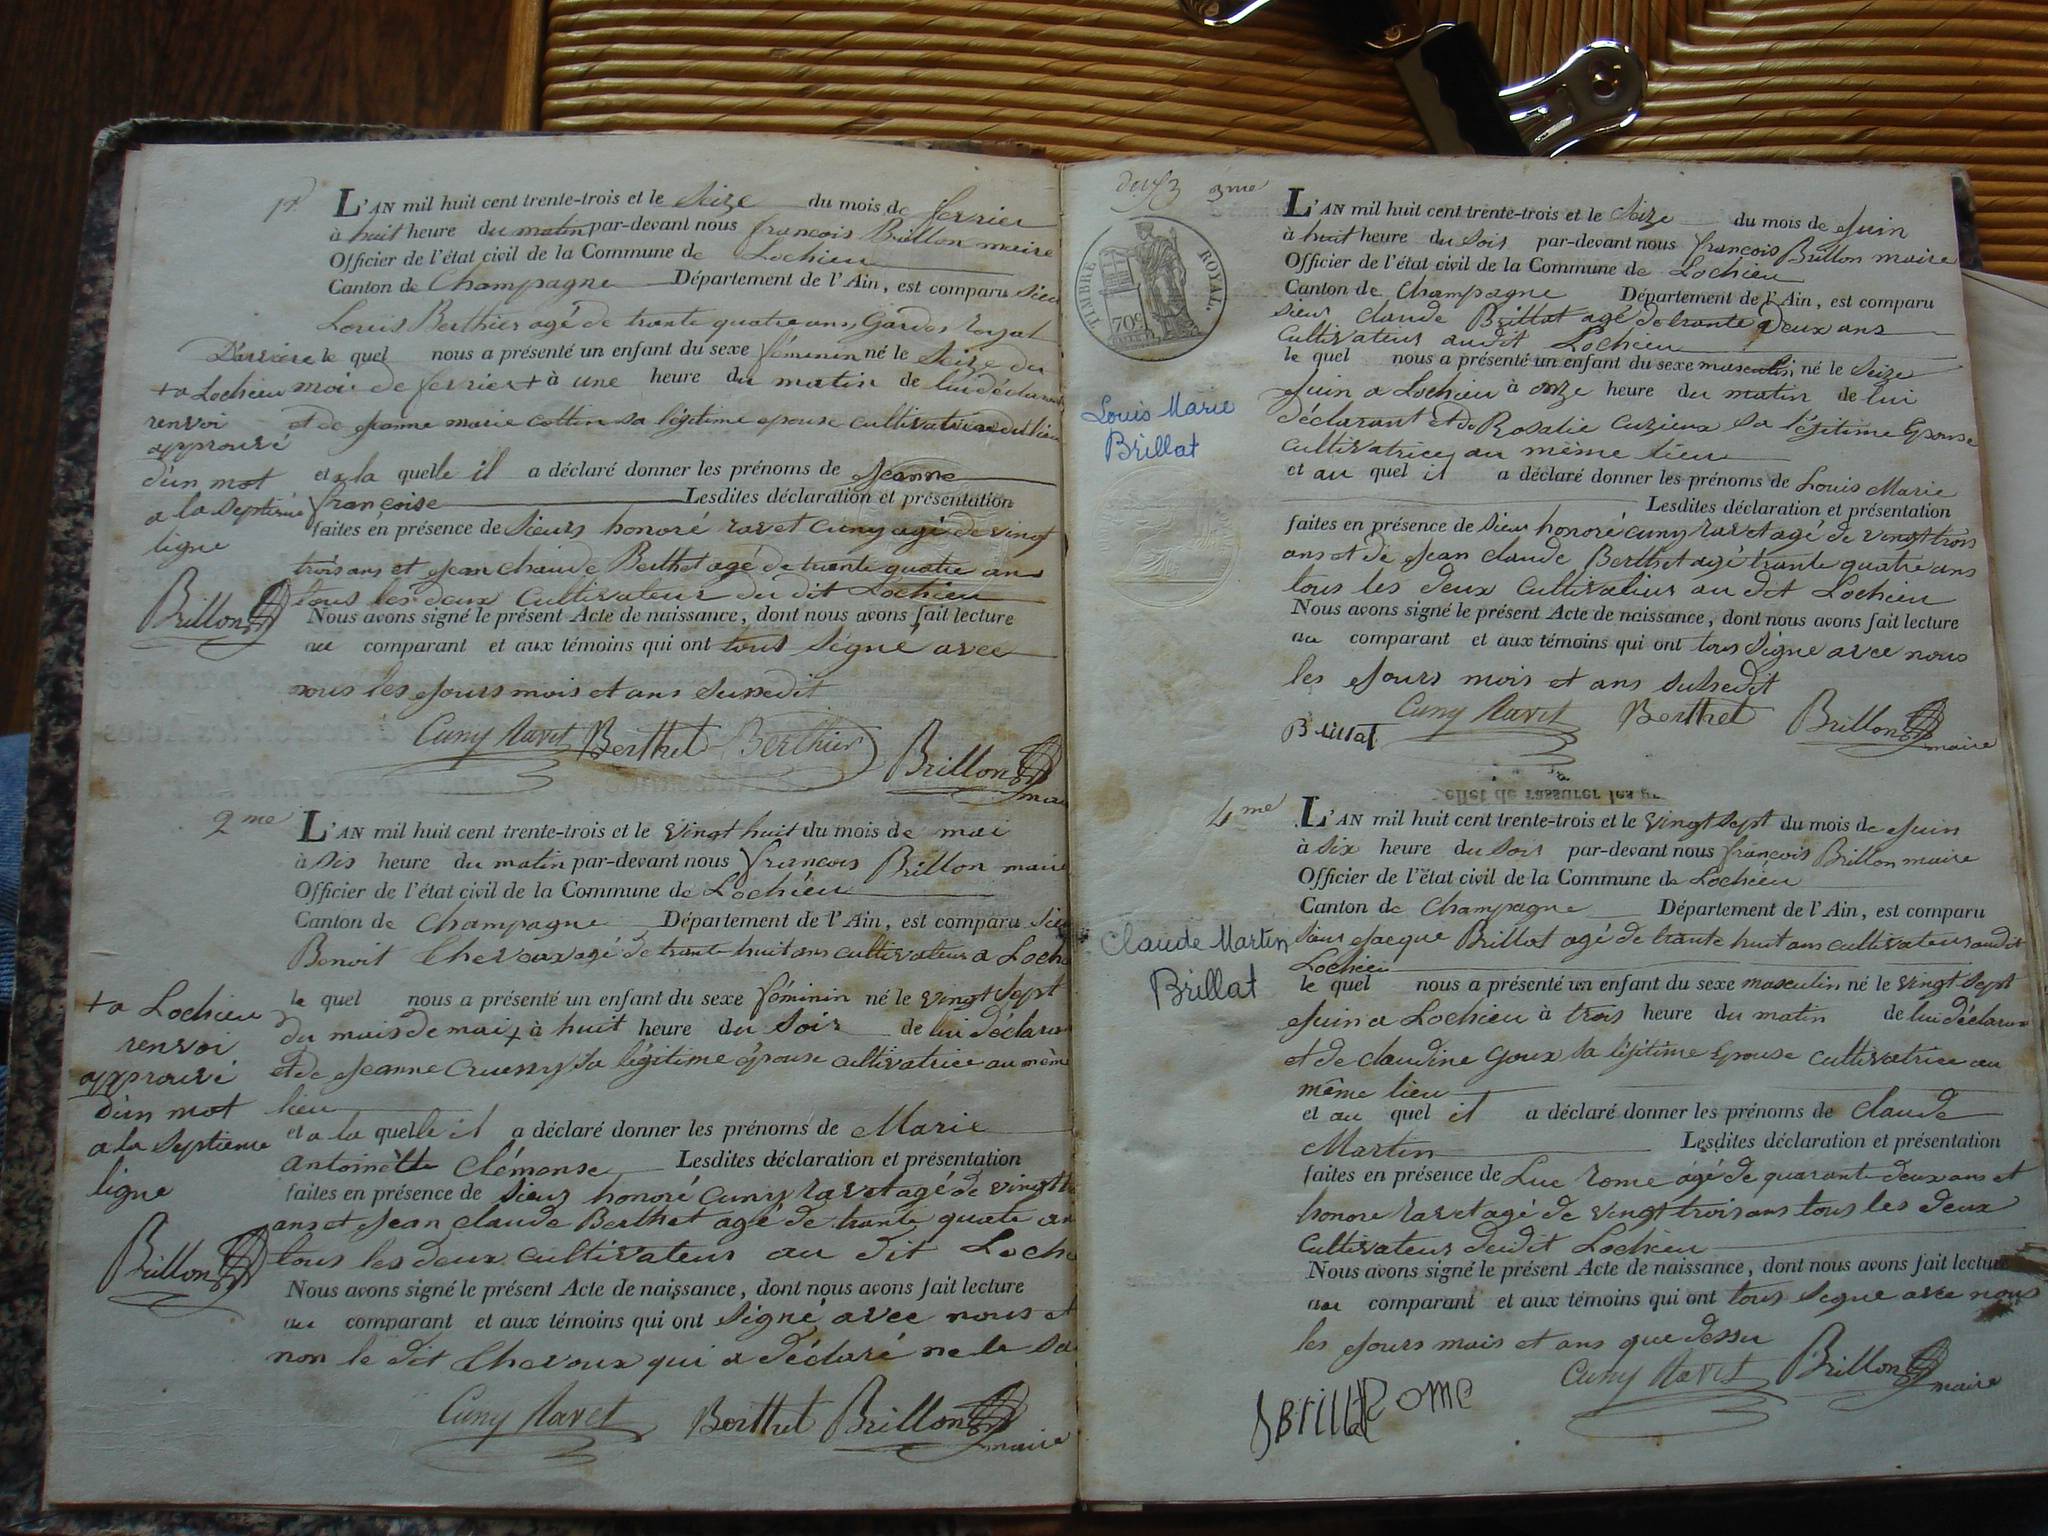 L'AN mil huit cent trente-trois et le Seize du mois de fevrier
à huit heure du matin par-devant nous françois Brillon maire
Officier de l'état civil de la Commune de Lochieu
Canton de Champagne Département de l'Ain, est comparu sieu
Louis Berthier agé de trante quatre ans Gardes royal
le quel nous a présenté un enfant du sexe féminin né le Seize du
mois de fevrier + à une heure du matin de lui déclarant
et de Jeanne marie cottin sa légitime epouse cultivatrice du lieu
et a la quelle il a déclaré donner les prénoms de Jeanne
françoise Lesdites déclaration et présentation
faites en présence de Sieurs honoré ravet Cuny agé de vingt
trois ans et Jean chaude Berthet agé de trante quatre ans
tous les deux Cultivateur du dit Lochieu
Nous avons signé le présent Acte de naissance, dont nous avons fait lecture
au comparant et aux témoins qui ont tous Signé avec
nous les Jours mois et ans Sussedit
Cuny Ravet Berthet Berthier Brillon
+ a Lochieu
renvoi
approuvé
d'un mot
a la Septieme
ligne
Brillon
2me
L'AN mil huit cent trente-trois et le vingt huit du mois de mai
à Sis heure du matin par-devant nous françois Brillon maire
Officier de l'état civil de la Commune de Lochieu
Canton de Champagne Département de l'Ain, est comparu Sieu
Benoit Chevoux agé de trante huit ans cultivateur a Loch
le quel nous a présenté un enfant du sexe féminin né le vingt Sept
du mois de mai + à huit heure du Soir de lui déclaran
et de Jeanne Sa légitime épouse cultivatrice au même
lieu
et a la quelle il a déclaré donner les prénoms de Marie
Antoinètte Clémense Lesdites déclaration et présentation
faites en présence de Sieurs honoré Cuny ravet agé de vingt t
ans et Jean claude Berthet agé de trante quatre an
tous les deux cultivateur au dit Loch
Nous avons signé le présent Acte de naissance, dont nous avons fait lecture
au comparant et aux témoins qui ont Signé avec nous et
non le dit Chevoux qui a déclaré ne le Sa
Cuny Ravet Berthet Brillon maire
+ a Lochieu
renvoi
approuvé
d'un mot
a la Septieme
ligne
Brillon
3me
TIMBRE ROYAL.
70c
Louis Marie
Brillat
L'AN mil huit cent trente-trois et le Seize du mois de Juin
à huit heure du Soir par-devant nous françois Brillon maire
Officier de l'état civil de la Commune de Lochieu
Canton de Champagne Département de l'Ain, est comparu
Sieur claude Brillat agé de trante deux ans
Cultivateur audit Lochieu
le quel nous a présenté un enfant du sexe masculin né le Seize
Juin a Lochieu à onze heure du matin de lui
déclarant et de Rosalie Cuzieux Sa légitime Epouse
cultivatrice au même lieu
et au quel il a déclaré donner les prénoms de Louis Marie
Lesdites déclaration et présentation
faites en présence de Sieur honoré cuny ravet agé de vingt trois
ans et de Jean claude Berthet agé trante quatre ans
tous les deux Cultivateur au dit Lochieu
Nous avons signé le présent Acte de naissance, dont nous avons fait lecture
au comparant et aux témoins qui ont tous Signe avec nous
les Jours mois et ans susedit
Brillat Cuny Ravet Berthet Brillon maire
4me
Claude Martin
Brillat
L'AN mil huit cent trente-trois et le vingt Sept du mois de Juin
à Six heure du Soir par-devant nous françois Brillon maire
Officier de l'état civil de la Commune de Lochieu
Canton de Champagne Département de l'Ain, est comparu
Sieur Jacque Brillat agé de trante huit ans cultivateur audit
Lochieu
le quel nous a présenté un enfant du sexe masculin né le vingt Sept
Juin a Lochieu à trois heure du matin de lui déclaran
et de claudine Goux Sa légitime Epouse cultivatrice au
même lieu
et au quel il a déclaré donner les prénoms de Claude
Martin Lesdites déclaration et présentation
faites en présence de Luc rome agé de quarante deux ans et
honore ravet agé de vingt trois ans tous les deux
Cultivateur dudit Lochieu
Nous avons signé le présent Acte de naissance, dont nous avons fait lecture
au comparant et aux témoins qui ont tous Signe avec nous
les Jours mois et ans que dessu
Cuny Ravet Brillon maire
Rome